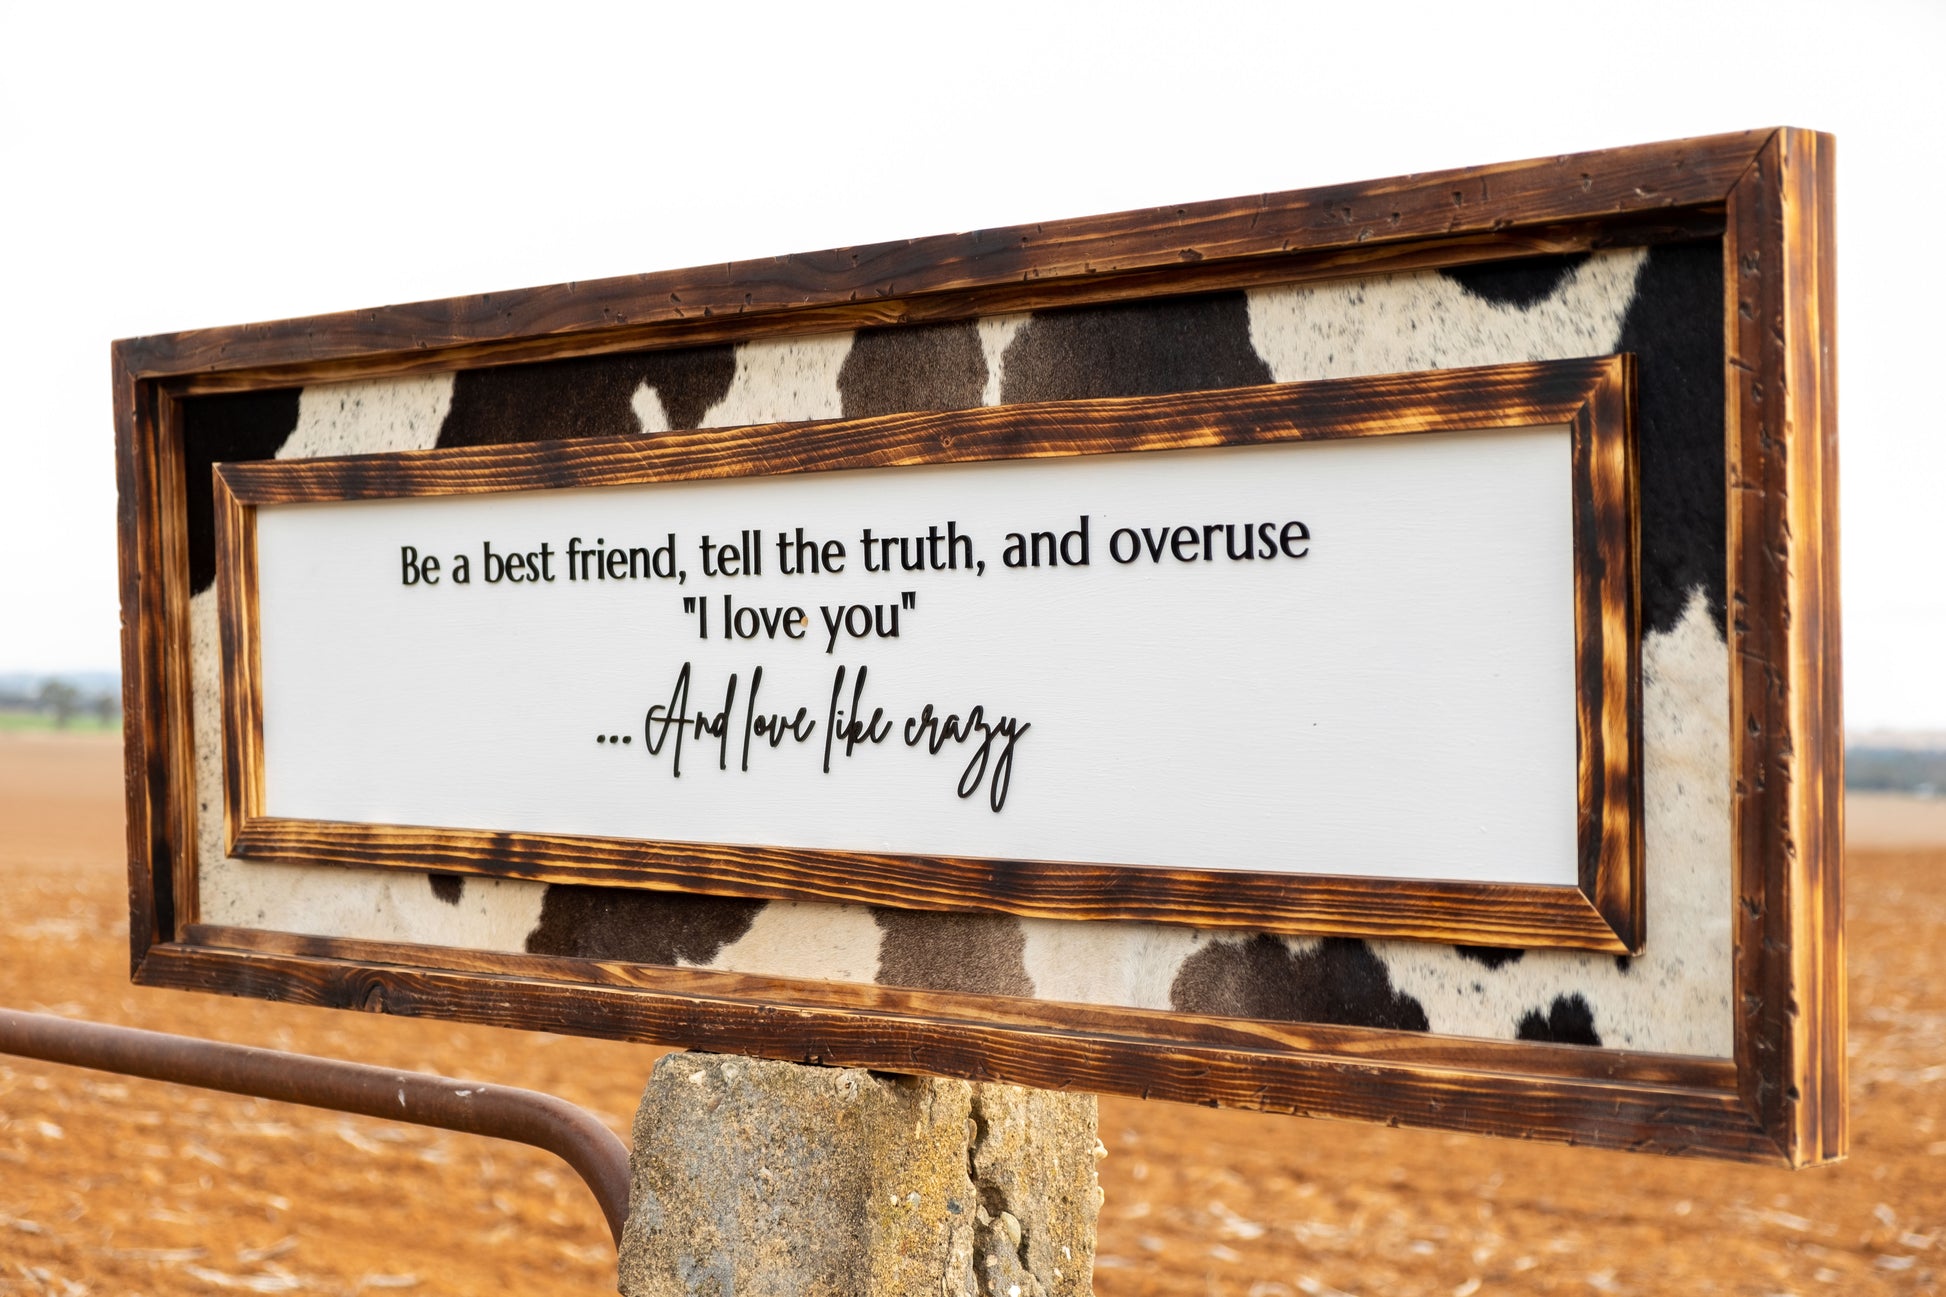 Be a best friend, tell the truth, and overuse
"I love you"
... And love like crazy